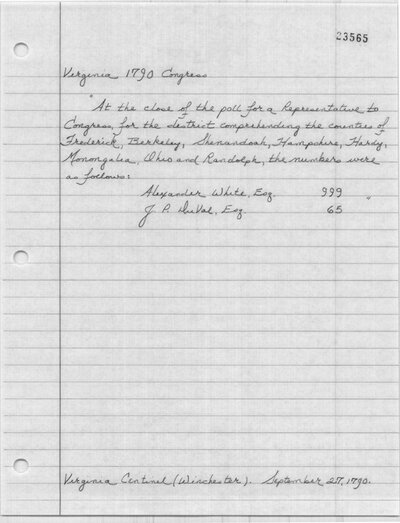 23565
Virginia 1790 Congress
"At the close of the poll for a Representative to
Congress, for the district comprehending the counties of
Frederick, Berkeley, Shenandoah, Hampshire, Hardy,
Monongalia, Ohio and Randolph, the numbers were
as follows:
Alexander White, Esq. 999
J. P. DuVal, Esq 65 "
Virginia Centinel (Winchester). September 27, 1790.